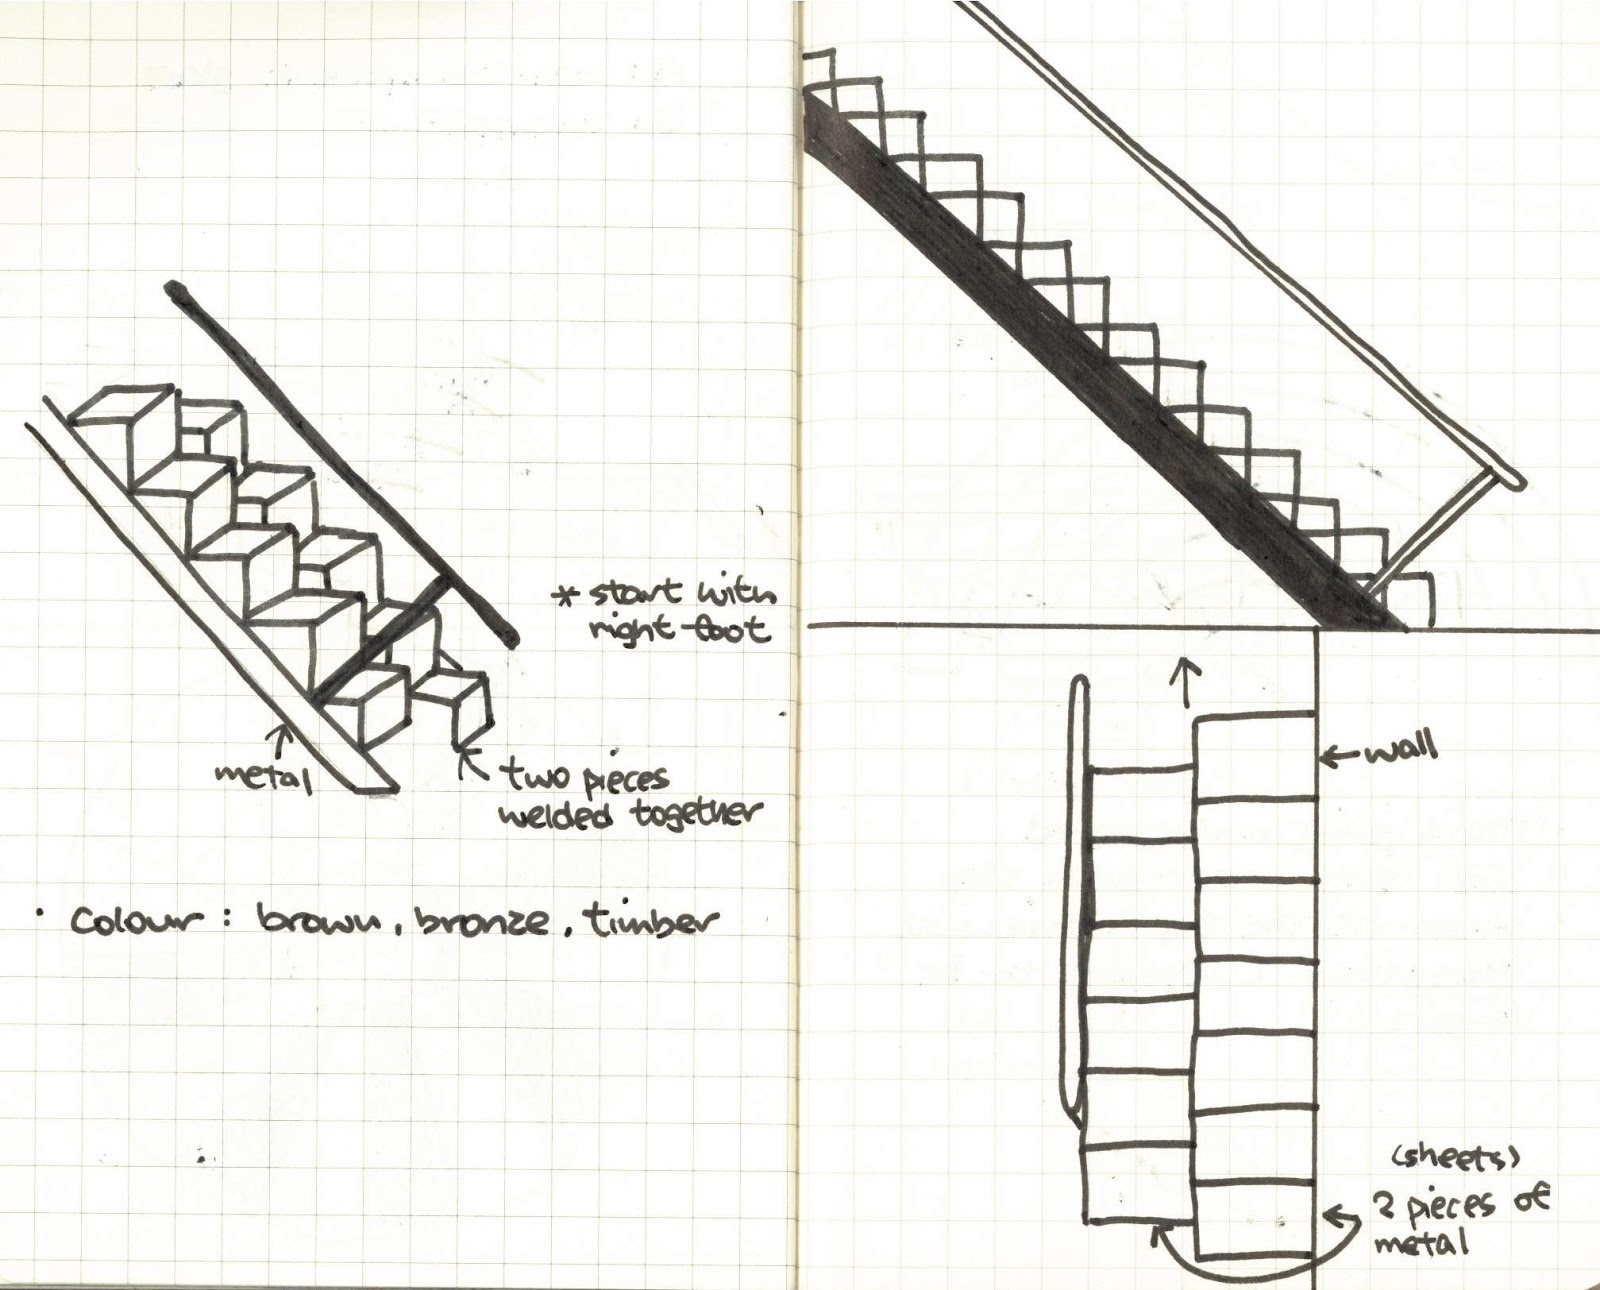 * start with
right foot
metal
two pieces
welded together
· colour : brown, bronze, timber
wall
(sheets)
2 pieces of
metal